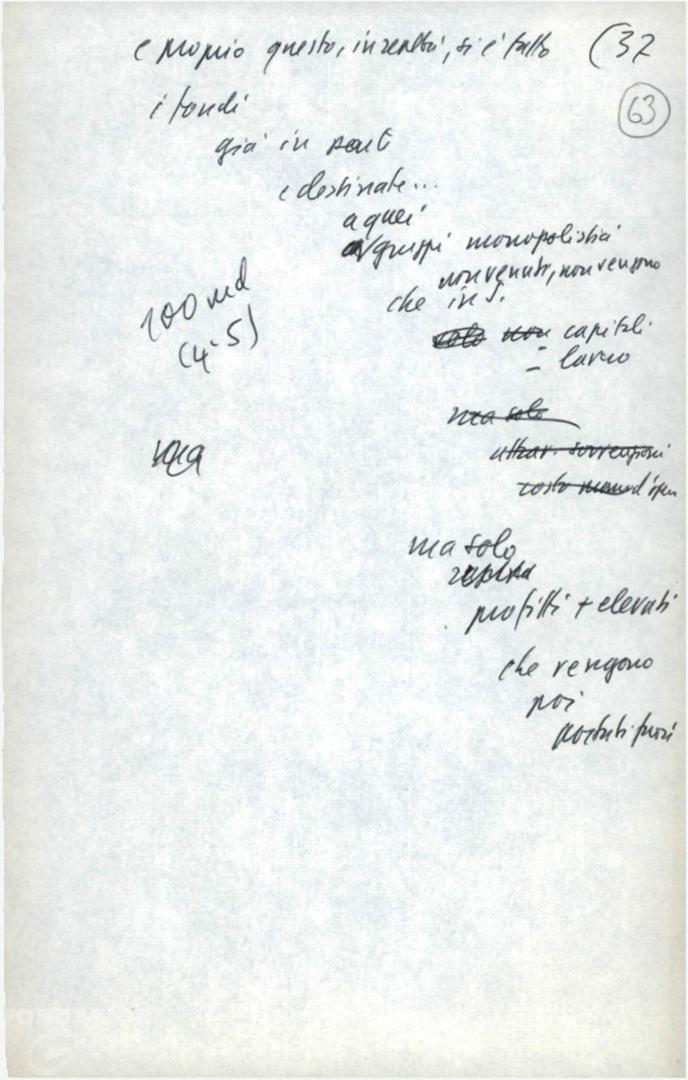 e proprio questo, in realtà, si è fatto (32
63
i fondi
già in
e destinate...
a quei
gruppi monopolistici
non venuti, non vengono
che in S.
100 md
(4-5)
solo non capitali
- lavoro
ma solo
costo
ma solo
rapina
profitti + elevati
che vengono
poi
portati fuori